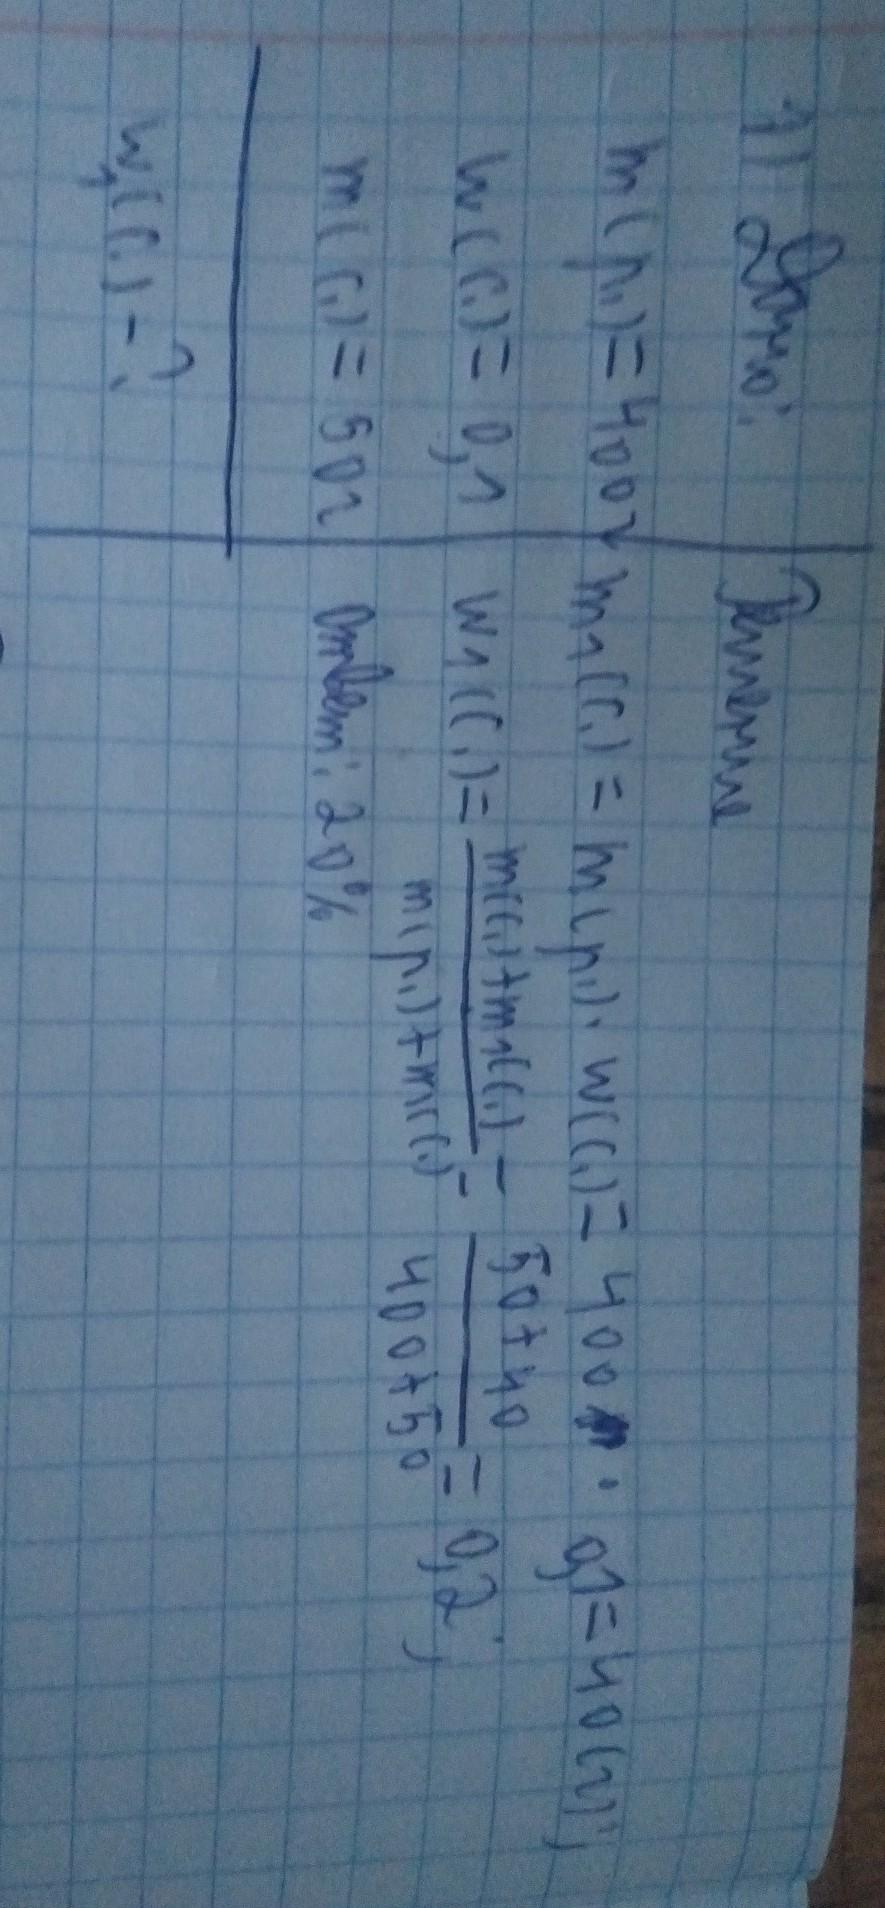 1) Дано:
m(р.) = 400г
w(с.) = 0,1
m(с.) = 50г
w₁(с.) - ?
Решение
m₁(с.) = m(р.) · w(с.) = 400 · 0,1 = 40(г);
w₁(с.) = m(с.) + m₁(с.) / m(р.) + m(с.) = 50 + 40 / 400 + 50 = 0,2;
Ответ: 20%